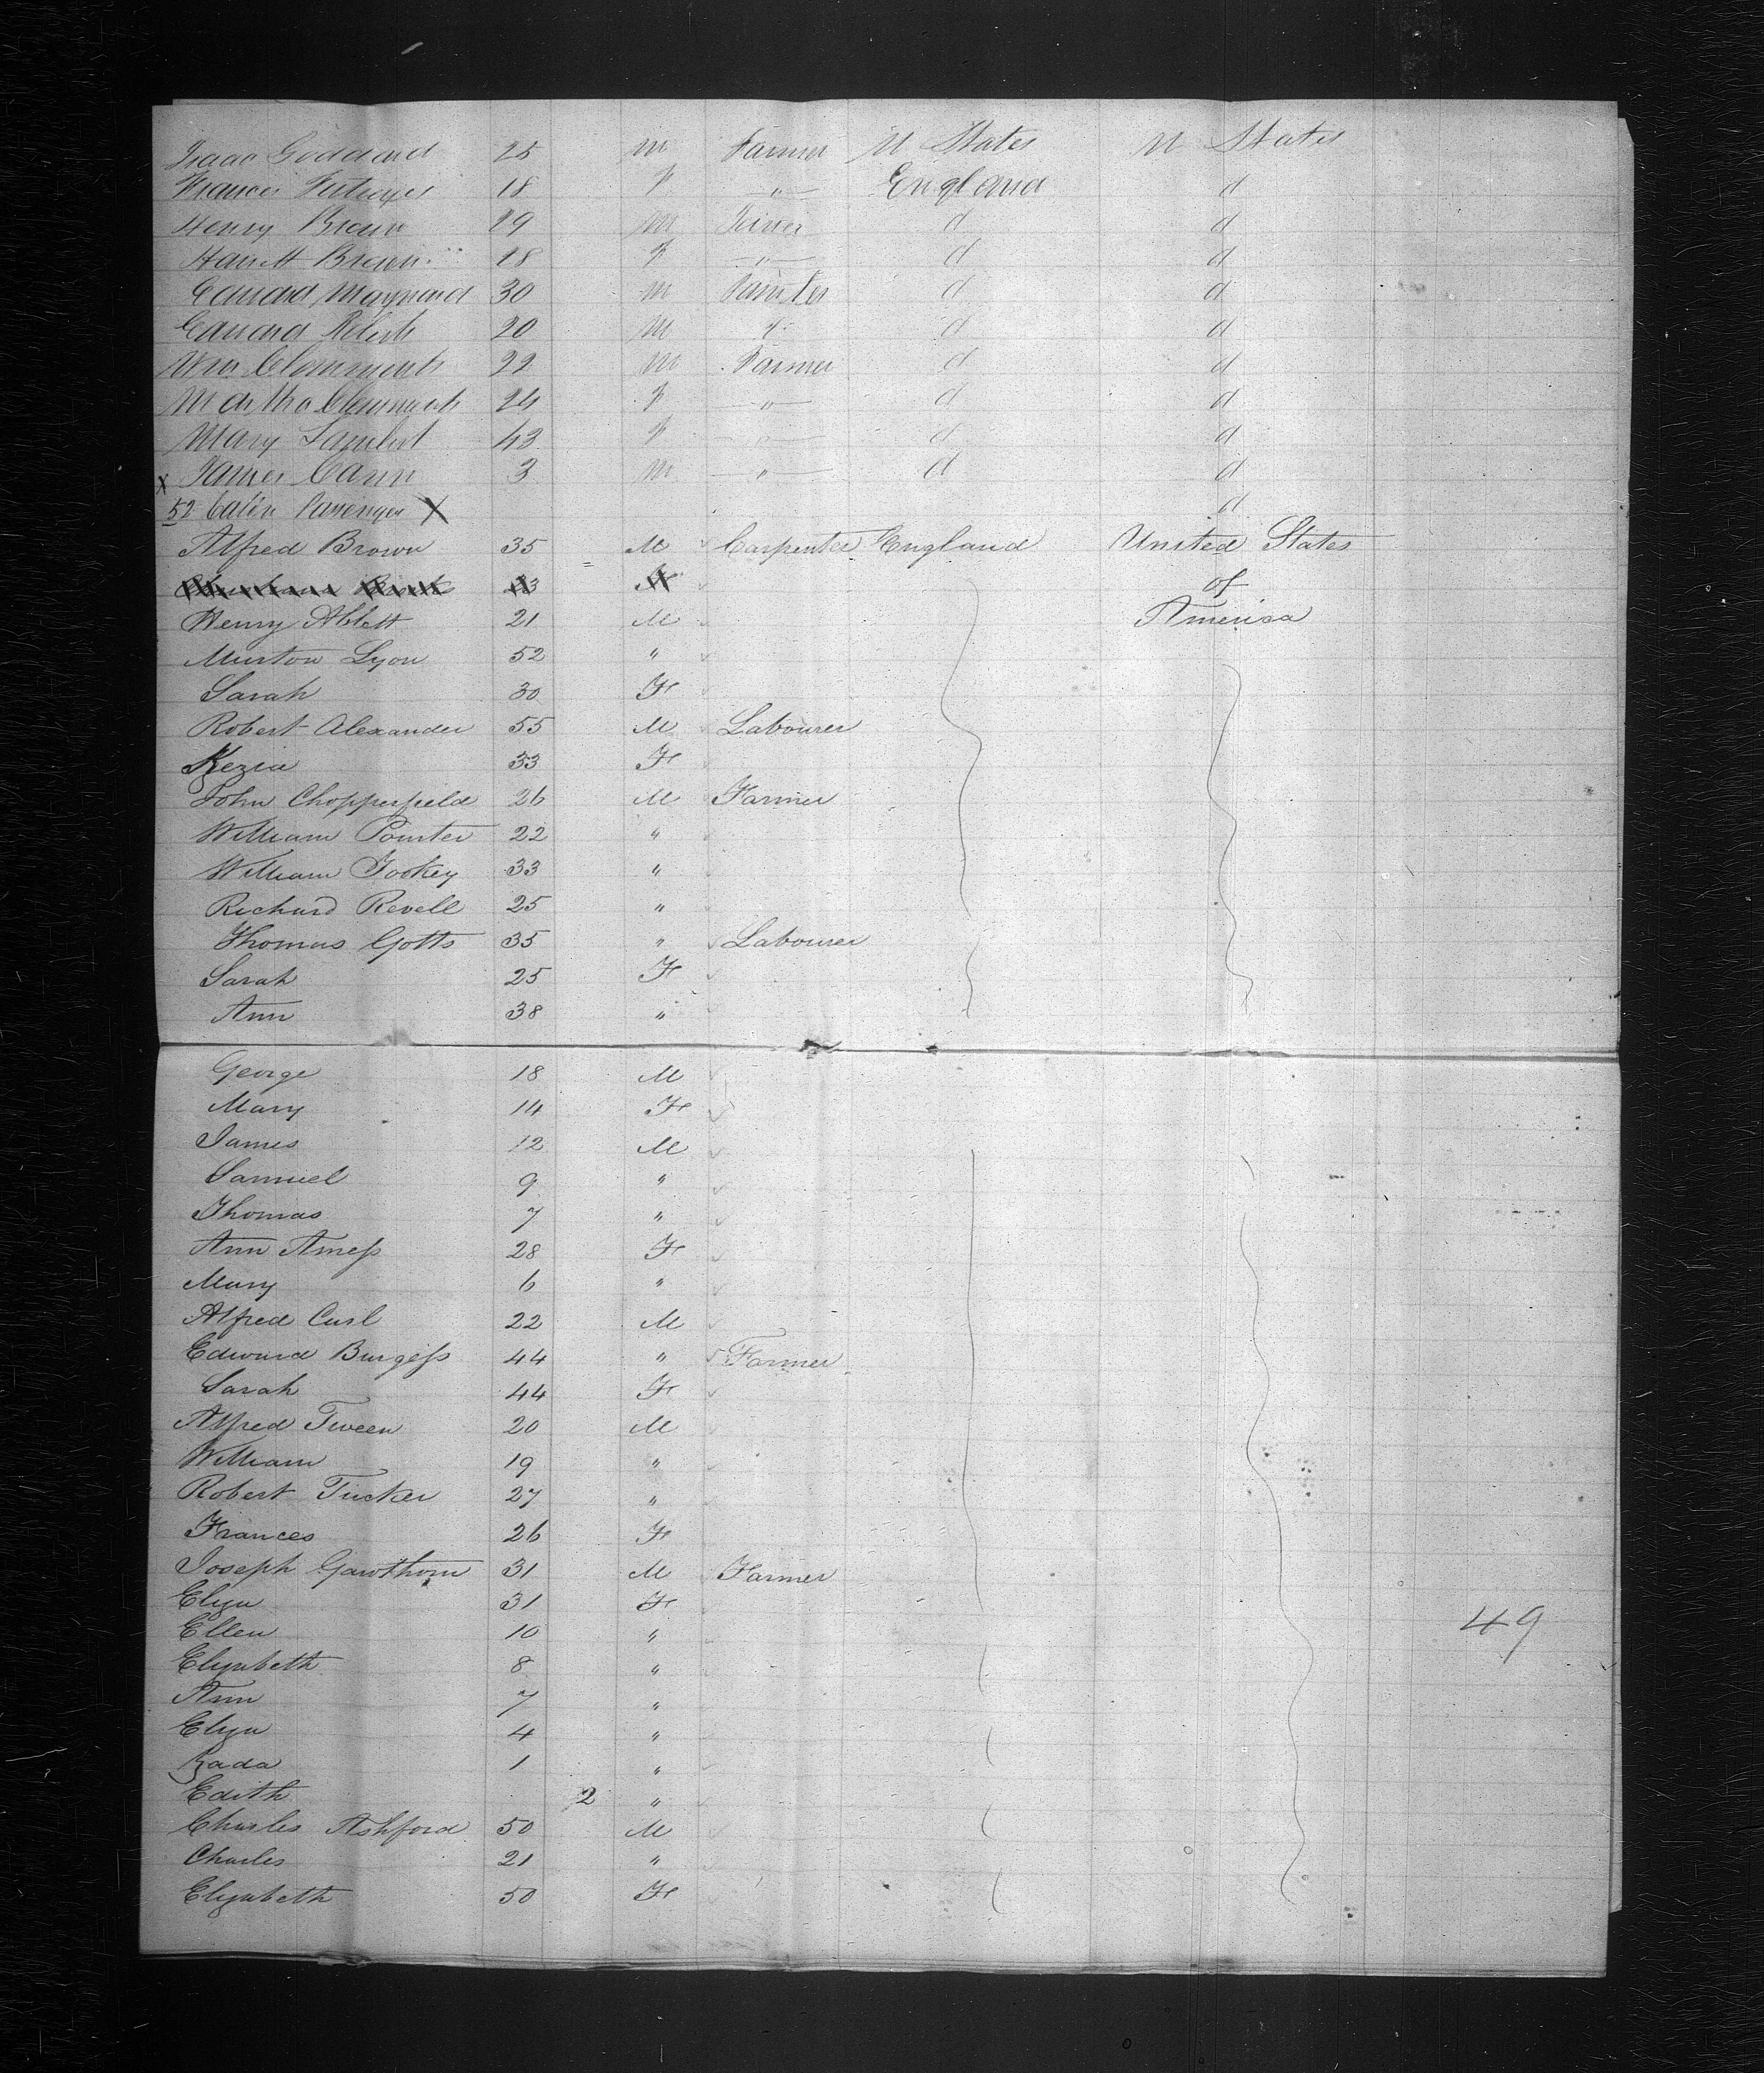 Isaac Goddard 25 m Farmer U States U States
Frances 18 f " England d
Henry Brown 29 m Joiner d d
Harriett Brown 28 f " d d
Edward Maynard 30 m Painter d d
Edward Roberts 20 m d d d
Wm Clemments 22 m Farmer d d
Martha Clemments 24 f " d d
Mary Lambert 43 f " d d
x James Cann 3 m " d d
52 Cabin Passenger X d
Alfred Brown 35 M Carpenter England United States
23 F of
Henry Ablett 21 M America
Murton Lyon 52 "
Sarah 30 F
Robert Alexander 55 M Labourer
Kezia 33 F
John Chopperfield 26 M Farmer
William Pointer 22 "
William Jookey 33 "
Richard Revell 25 "
Thomas Gotts 35 " Labourer
Sarah 25 F
Ann 38 "
George 18 M
Mary 14 F
James 12 M
Samuel 9 "
Thomas 7 "
Ann Amess 28 F
Mary 6 "
Alfred Curl 22 M
Edward Burgess 44 " Farmer
Sarah 44 F
Alfred Tween 20 M
William 19 "
Robert Tucker 27 "
Frances 26 F
Joseph Gawthorn 31 M Farmer
Elyza 31 F
Ellen 10 " 49
Elyzabeth 8 "
Ann 7 "
Elyza 4 "
Zada 1 "
Edith 2 "
Charles Ashford 50 M
Charles 21 "
Elyzabeth 50 F